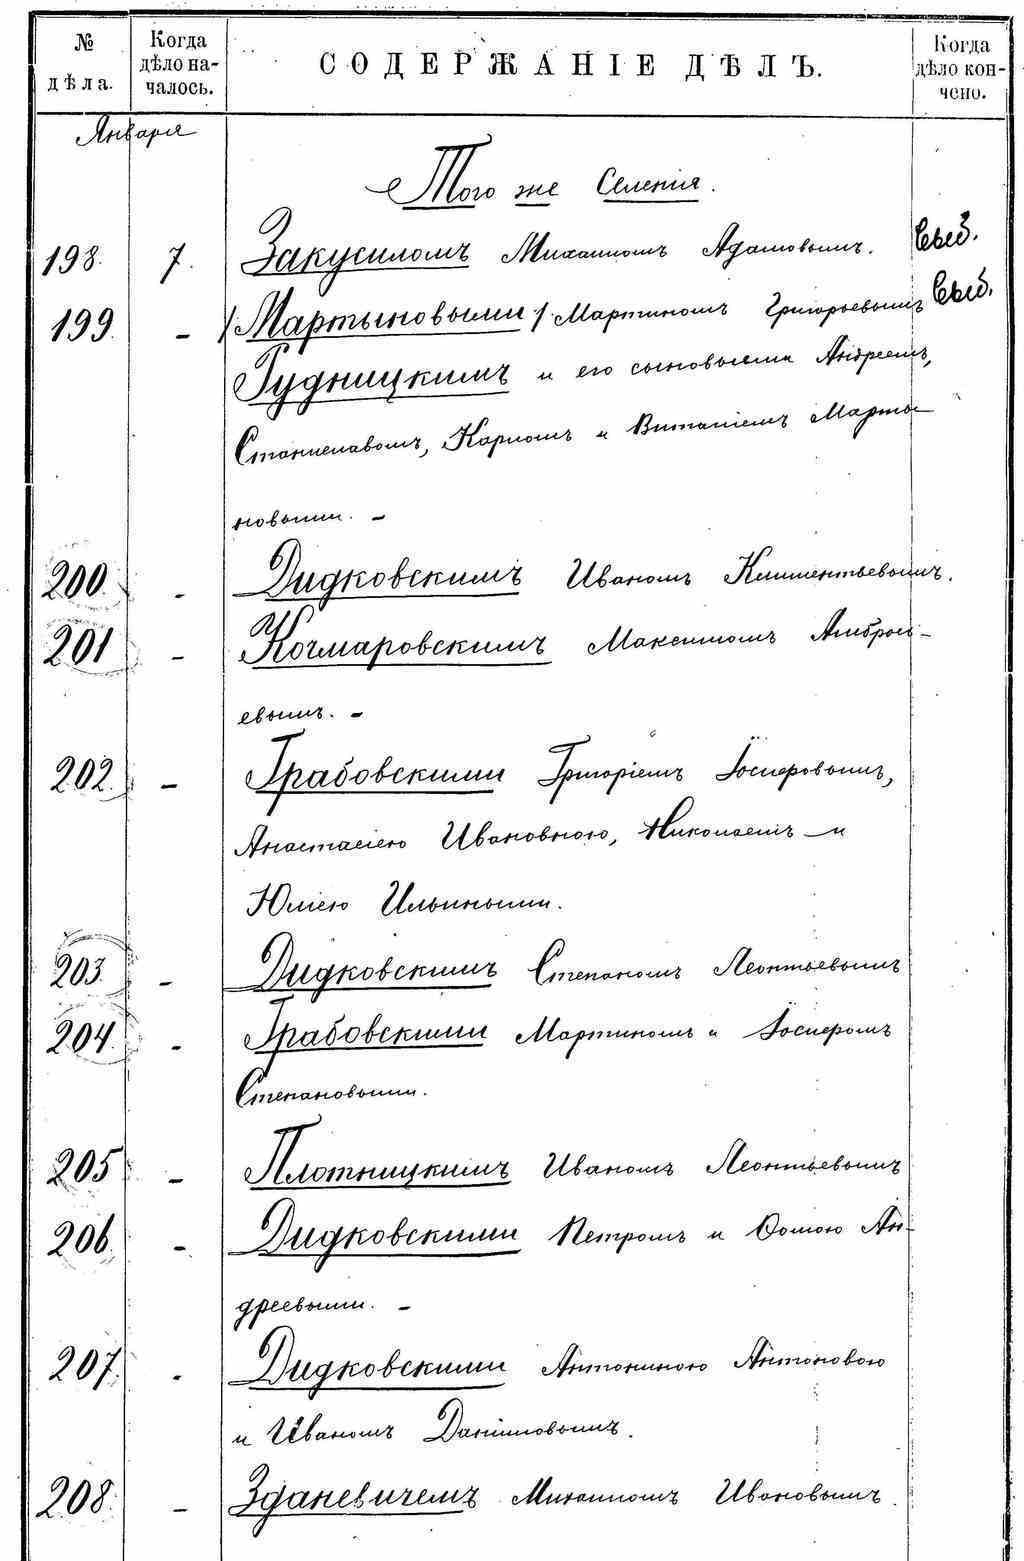 № дѣла. Когда дѣло началось. СОДЕРЖАНІЕ ДѢЛЪ. Когда дѣло кончено.
Января
Того же Селенія.
198. 7. Закусиломъ Михаиломъ Адамовымъ. Выб.
199. - /Мартыновыми/ Мартиномъ Григорьевымъ Выб.
Рудницкимъ и его сыновьями Андреемъ,
Станиславомъ, Карломъ и Виталіемъ Марты-
новыми. -
200. - Дидковскимъ Иваномъ Климентьевымъ.
201 - Кочмаровскимъ Максимомъ Амброс-
евымъ. -
202. - Грабовскими Григоріемъ Іосифовымъ,
Анастасіею Ивановною, Николаемъ и
Юліею Ильиными.
203. - Дидковскимъ Степаномъ Леонтьевымъ
204. - Грабовскими Мартиномъ и Іосифомъ
Степановыми.
205 - Плотницкимъ Иваномъ Леонтьевымъ
206. - Дидковскими Петромъ и Ѳомою Ан-
дреевыми. -
207. - Дидковскими Антониною Антоновою
и Иваномъ Даніиловымъ.
208. - Зданевичемъ Михаиломъ Ивановымъ.